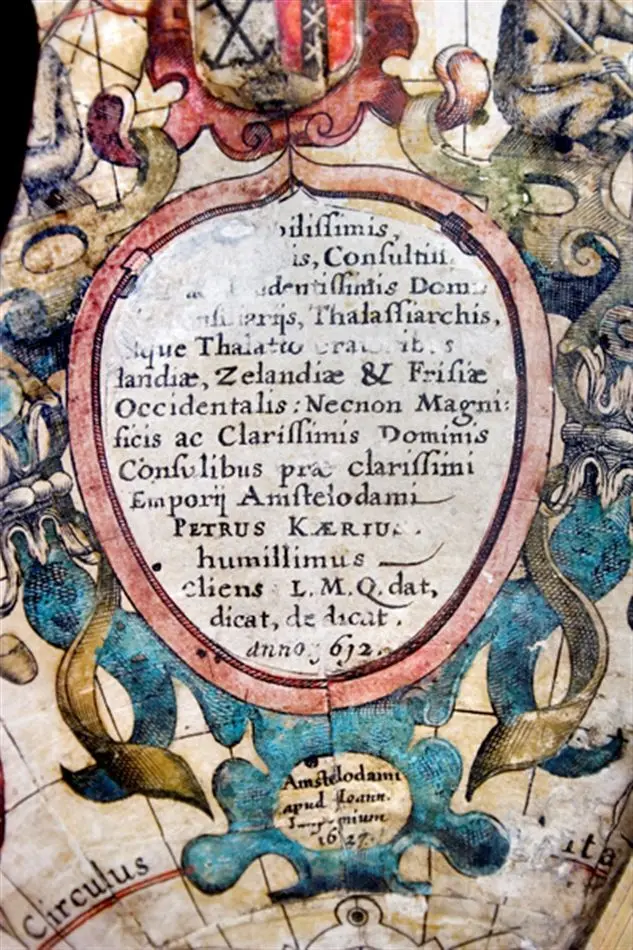 iliſſimis,
is, Conſultiſſ
dentiſſimis Domi
Thalaſſiarchis,
que Thalatto
landiæ, Zelandiæ & Friſiæ
Occidentalis: Necnon Magni:
ficis ac Clariſſimis Dominis
Conſulibus præ clariſſimi
Emporij Amſtelodami
PETRUS KÆRIUS.
humillimus
cliens L. M. Q. dat,
dicat, dedicat.
anno, 612
Amſtelodami
apud Ioann.
1627.
Circulus
ita